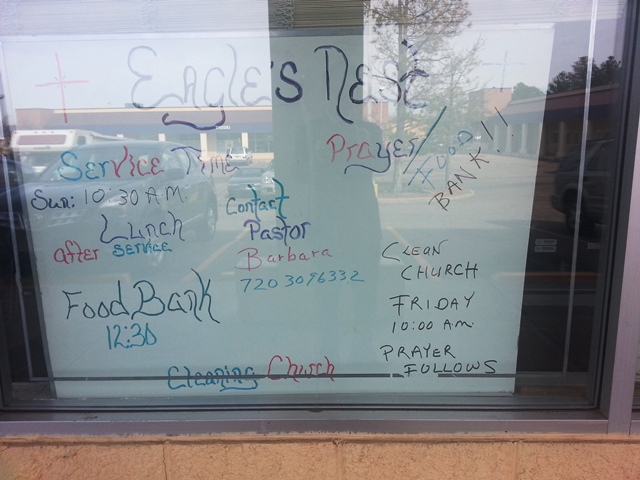 Eagle's Nest
Service Time
Sun: 10:30 AM
Lunch
after service
Food Bank
12:30
Contact
Pastor
Barbara
720 309 6332
Prayer/
FOOD
BANK!!
CLEAN
CHURCH
FRIDAY
10:00 am
PRAYER
FOLLOWS
Cleaning Church